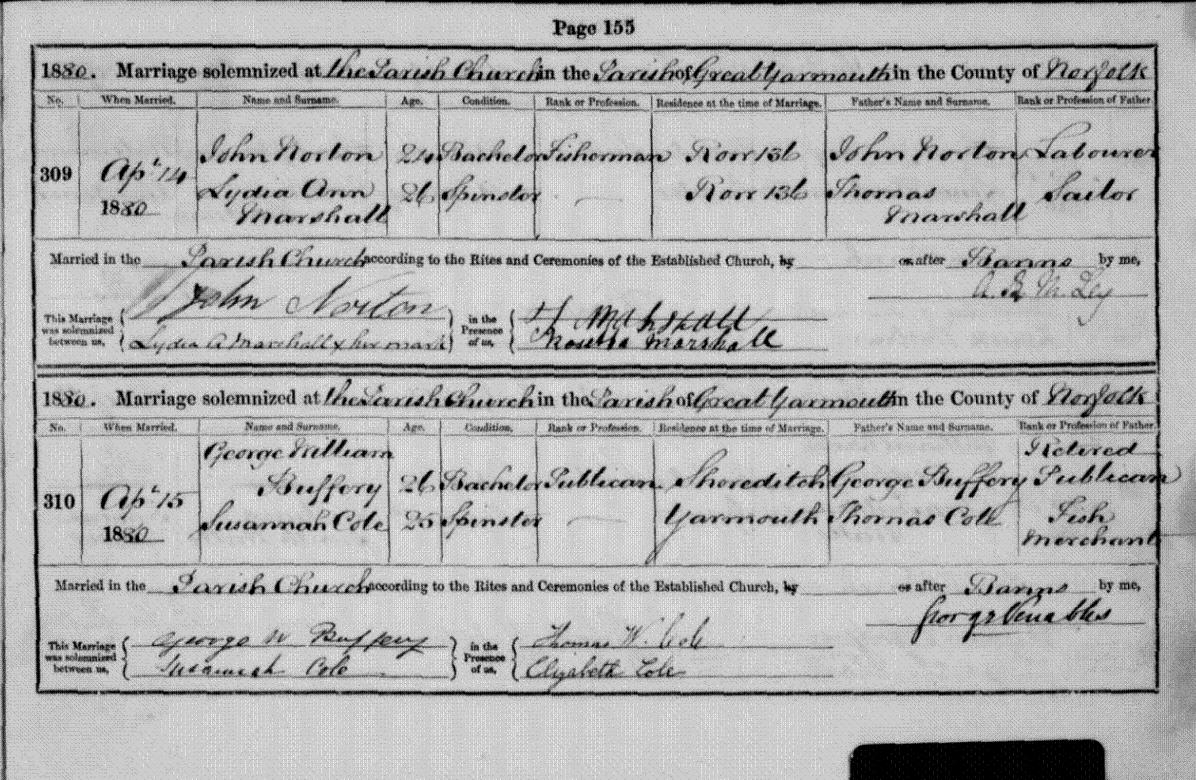 Page 155
1880. Marriage solemnized at the Parish Church in the Parish of Great Yarmouth in the County of Norfolk
No. When Married. Name and Surname. Age. Condition. Rank or Profession. Residence at the time of Marriage. Father's Name and Surname. Rank or Profession of Father.
John Norton 24 Bachelor Fisherman Row 136 John Norton Labourer
309 Apl 14 Lydia Ann 26 Spinster — Row 136 Thomas Sailor
1880 Marshall Marshall
Married in the Parish Church according to the Rites and Ceremonies of the Established Church, by or after Banns by me,
This Marriage was solemnized between us, John Norton in the Presence of us, Marshall
Lydia A Marshall x her mark Marshall
1880. Marriage solemnized at the Parish Church in the Parish of Great Yarmouth in the County of Norfolk
No. When Married. Name and Surname. Age. Condition. Rank or Profession. Residence at the time of Marriage. Father's Name and Surname. Rank or Profession of Father.
George William Retired
Buffery 26 Bachelor Publican Shoreditch George Buffery Publican
310 Apl 15 Susannah Cole 25 Spinster — Yarmouth Thomas Cole Fish
1880 Merchant
Married in the Parish Church according to the Rites and Ceremonies of the Established Church, by or after Banns by me,
George Venables
This Marriage was solemnized between us, George W Buffery in the Presence of us, Thomas W. Cole
Susannah Cole Elizabeth Cole